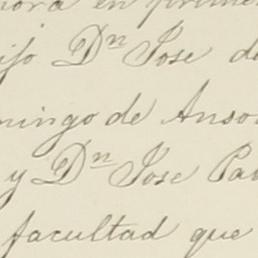 hora en primer
ijo Dn Jose de
mingo de Anso
y Dn Jose Pa
facultad que